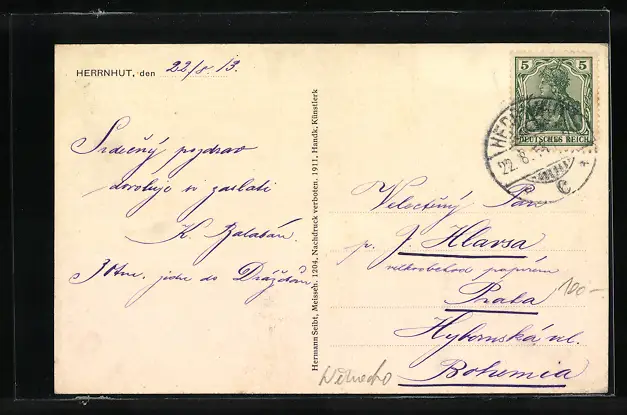 HERRNHUT, den 22/8. 13.
Srdečný pozdrav
dovoluje si zaslati
K. Balabán.
30tm. jede do Drážďan,
Hermann Seibt, Meissen. 1204. Nachdruck verboten. 1911, Handk. Künstlerk
5 5
DEUTSCHES REICH
22. 8.
C
Veloctěný Pán
p. J. Hlavsa
velkoobchod papírem
Praha
Hybernská ul.
Bohemia
100-
Německo